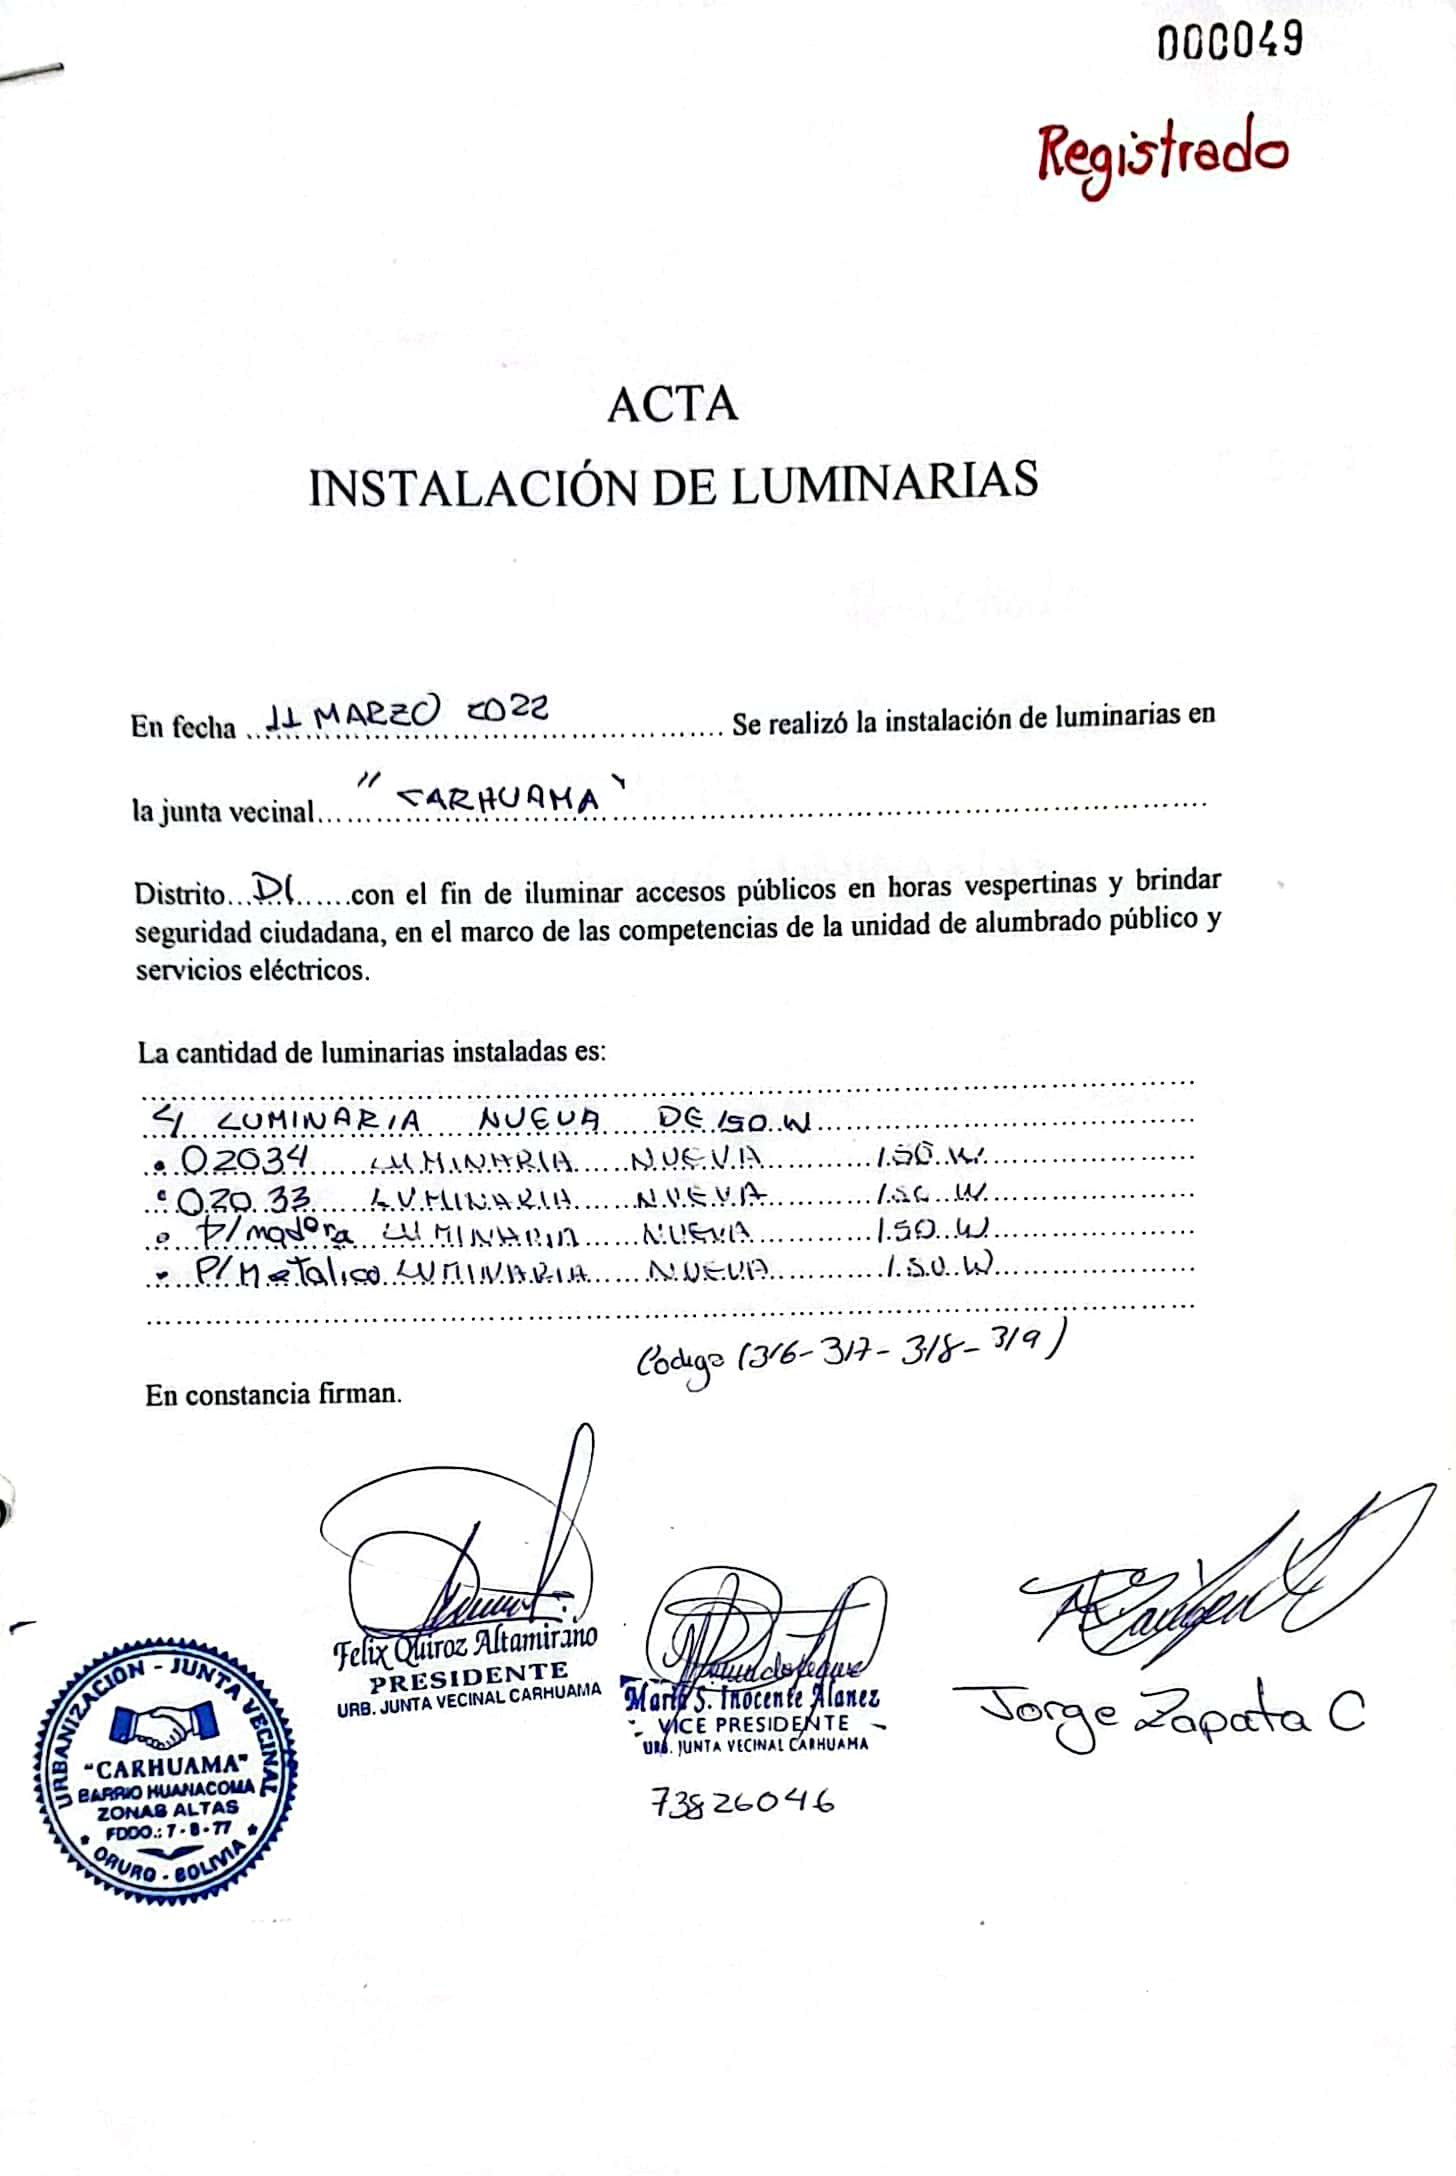 000049
Registrado
ACTA
INSTALACIÓN DE LUMINARIAS
En fecha 11 MARZO 2022 Se realizó la instalación de luminarias en
la junta vecinal "CARHUAMA"
Distrito D1 con el fin de iluminar accesos públicos en horas vespertinas y brindar
seguridad ciudadana, en el marco de las competencias de la unidad de alumbrado público y
servicios eléctricos.
La cantidad de luminarias instaladas es:
4 LUMINARIA NUEVA DE 150 W
• 02034 LUMINARIA NUEVA 150 W
• 02033 LUMINARIA NUEVA 150 W
• P/madera LUMINARIA NUEVA 150 W
• P/Metalico LUMINARIA NUEVA 150 W
Codigo (316-317-318-319)
En constancia firman.
Felix Quiroz Altamirano
PRESIDENTE
URB. JUNTA VECINAL CARHUAMA
María S. Inocente Alanez
VICE PRESIDENTE
URB. JUNTA VECINAL CARHUAMA
73826046
Jorge Zapata C
URBANIZACIÓN - JUNTA VECINAL
"CARHUAMA"
BARRIO HUANACOMA
ZONAS ALTAS
FDDO.: 7-8-77
ORURO - BOLIVIA